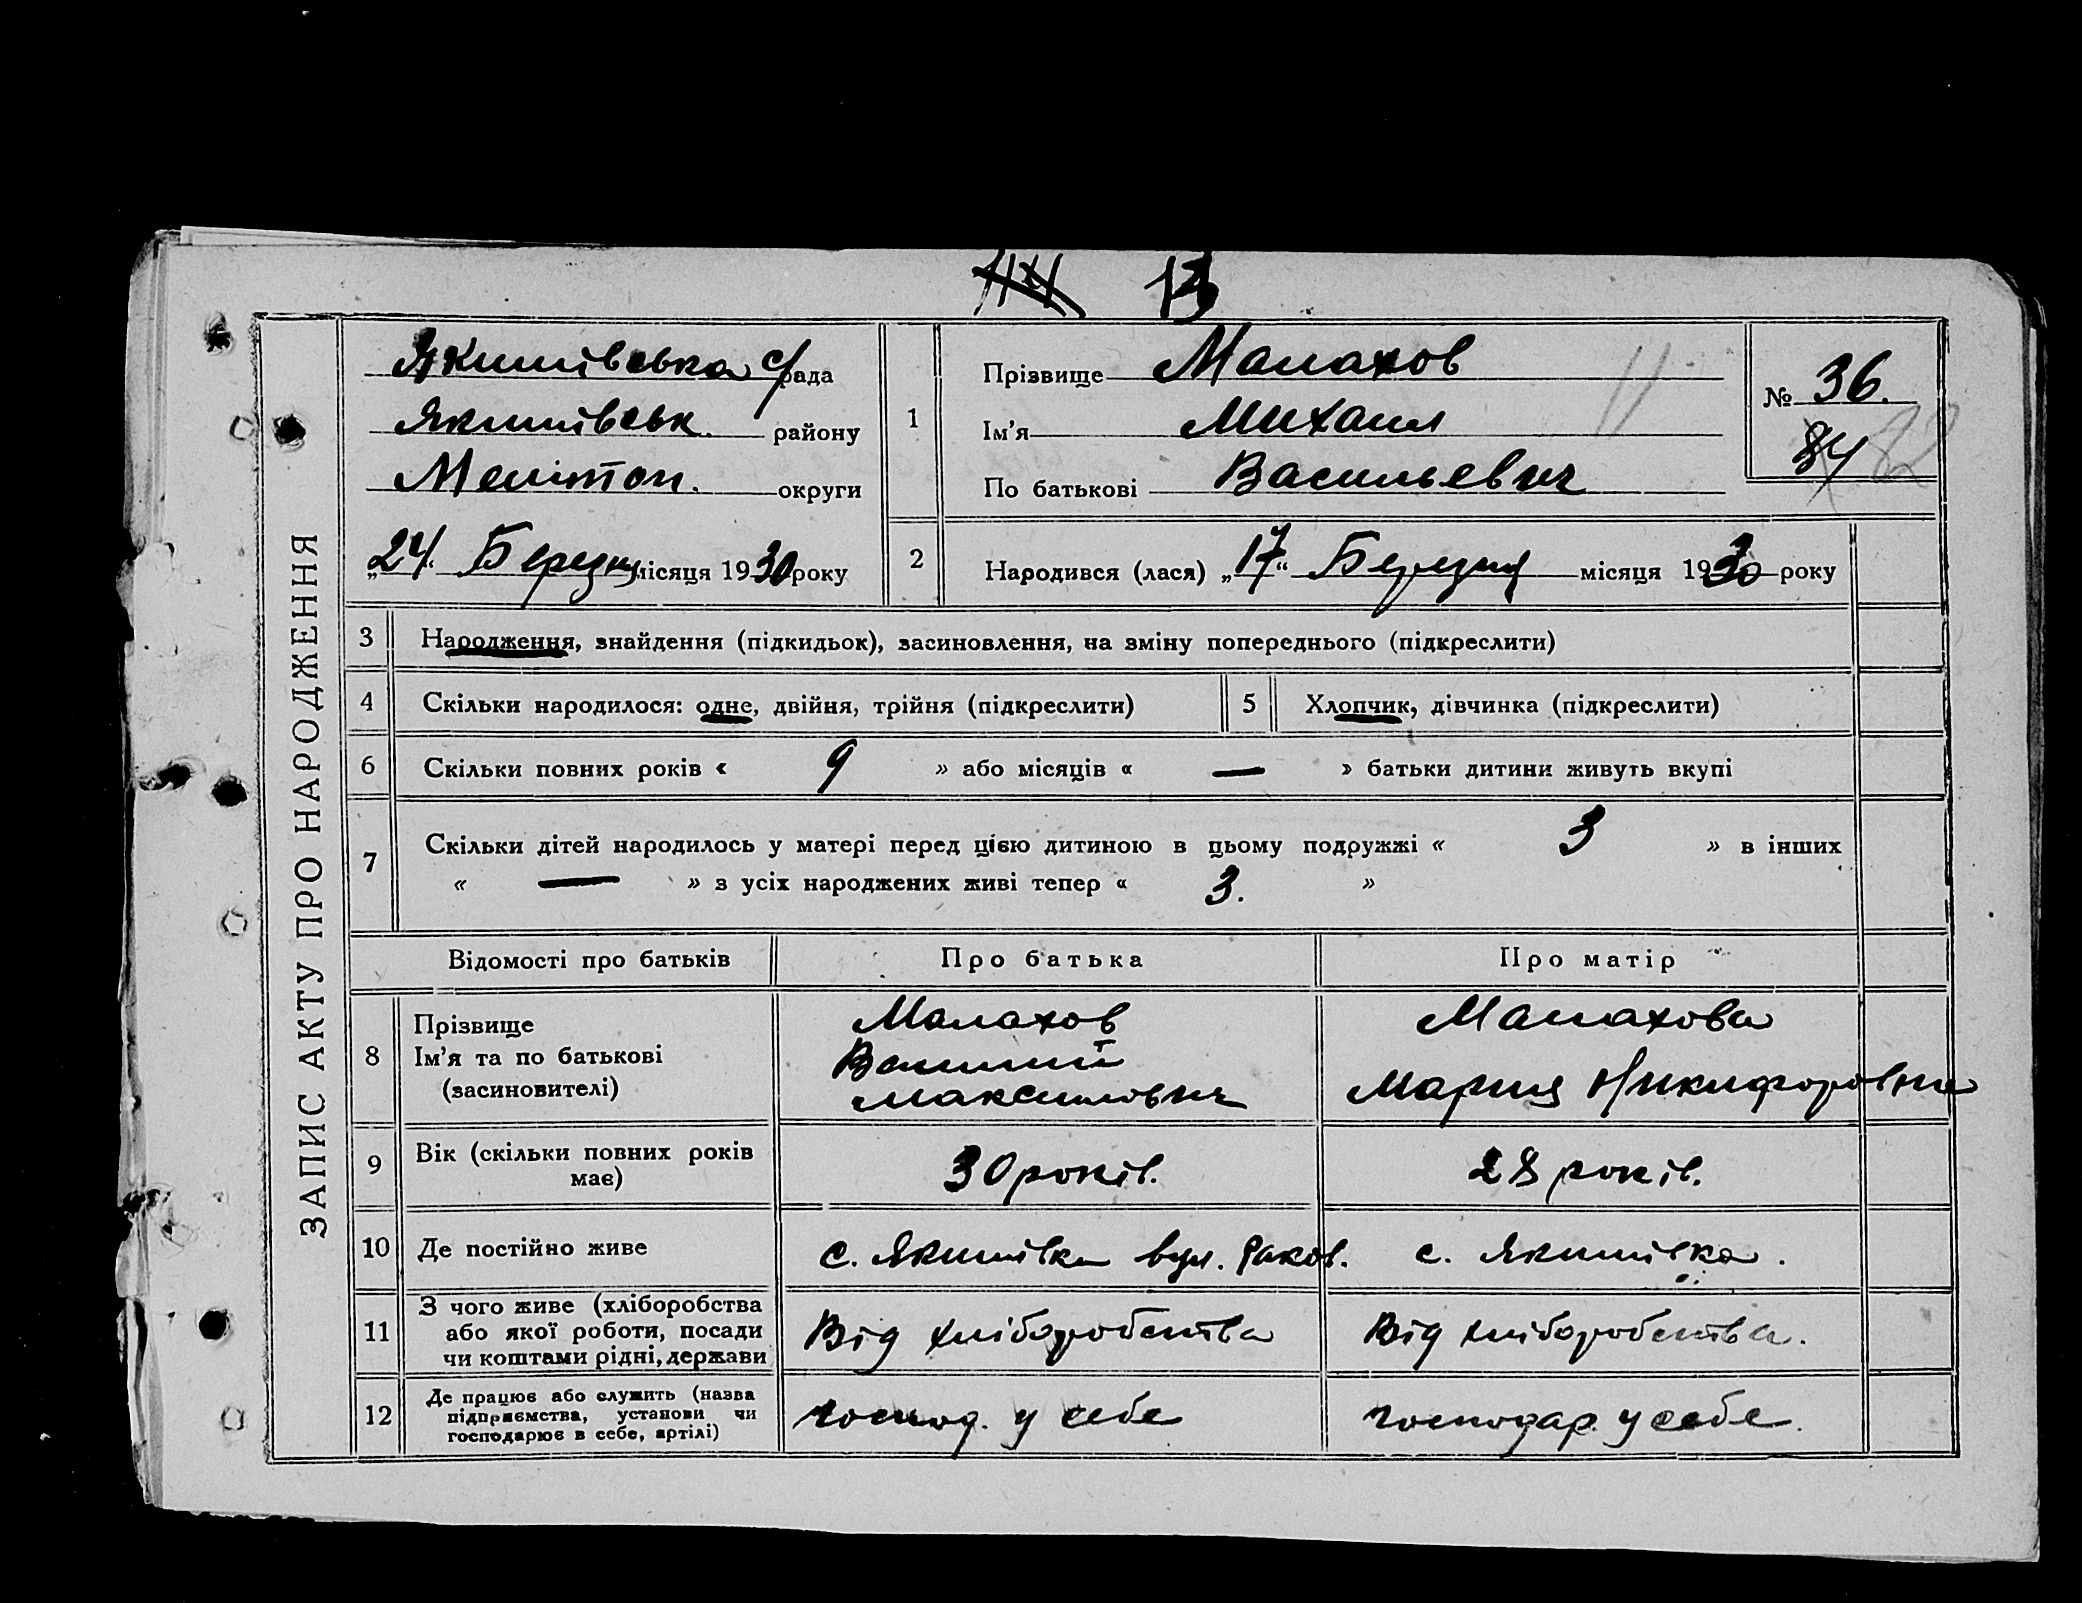 13
ЗАПИС АКТУ ПРО НАРОДЖЕННЯ
Якимівська с/рада
Якимівськ. району
Меліт​оп. округи
„24“ Березня місяця 1930 року
1
Прізвище Малахов
Ім’я Михаил
По батькові Васильевич
№ 36.
84
82
2
Народився (лася) „17“ Березня місяця 1930 року
3 Народження, знайдення (підкидьок), засиновлення, на зміну попереднього (підкреслити)
4 Скільки народилося: одне, двійня, трійня (підкреслити) 5 Хлопчик, дівчинка (підкреслити)
6 Скільки повних років « 9 » або місяців « — » батьки дитини живуть вкупі
7 Скільки дітей народилось у матері перед цією дитиною в цьому подружжі « 3 » в інших
« — » з усіх народжених живі тепер « 3. »
Відомості про батьків Про батька Про матір
8
Прізвище Малахов Малахова
Ім’я та по батькові Василий Мария Никифоровна
(засиновителі) Максимович
9 Вік (скільки повних років має) 30 років. 28 років.
10 Де постійно живе с. Якимівка вул. с. Якимівка.
11 З чого живе (хліборобства
або якої роботи, посади Від хліборобства Від хліборобства.
чи коштами рідні, держави
12 Де працює або служить (назва
підприємства, установи чи господ. у себе господар. у себе.
господарює в себе, артілі)